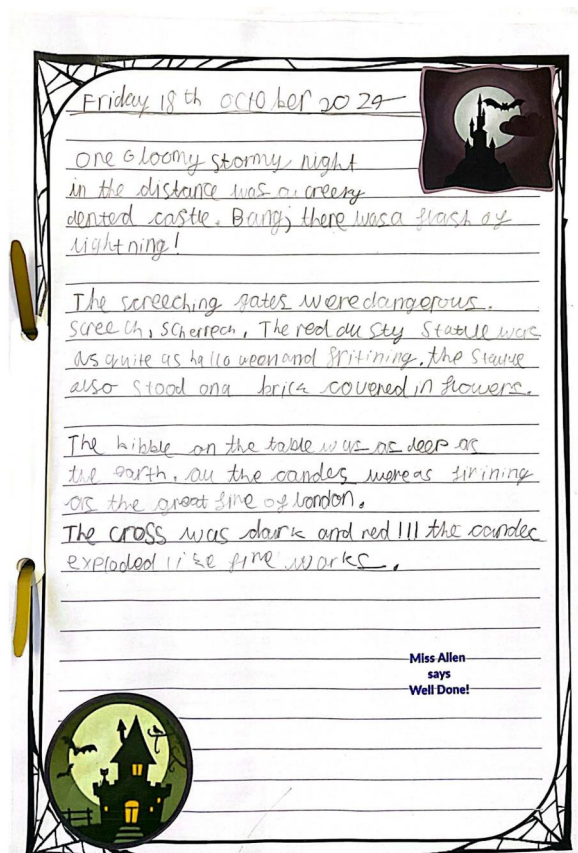 Friday 18th October 2024
One Gloomy stormy night
in the distance was a creepy
dented castle. Bang, there was a flash of
lightning!
The screeching gates were dangerous.
Screech, scherrech, The red dusty Statue was
as quite as hallo ween and fritining, the statue
also stood ona brick covered in flowers.
The bibble on the table was as deep as
the earth, all the candes were as firining
as the great fire of london.
The cross was dark and red!!! the candes
exploded like fire works.
Miss Allen
says
Well Done!